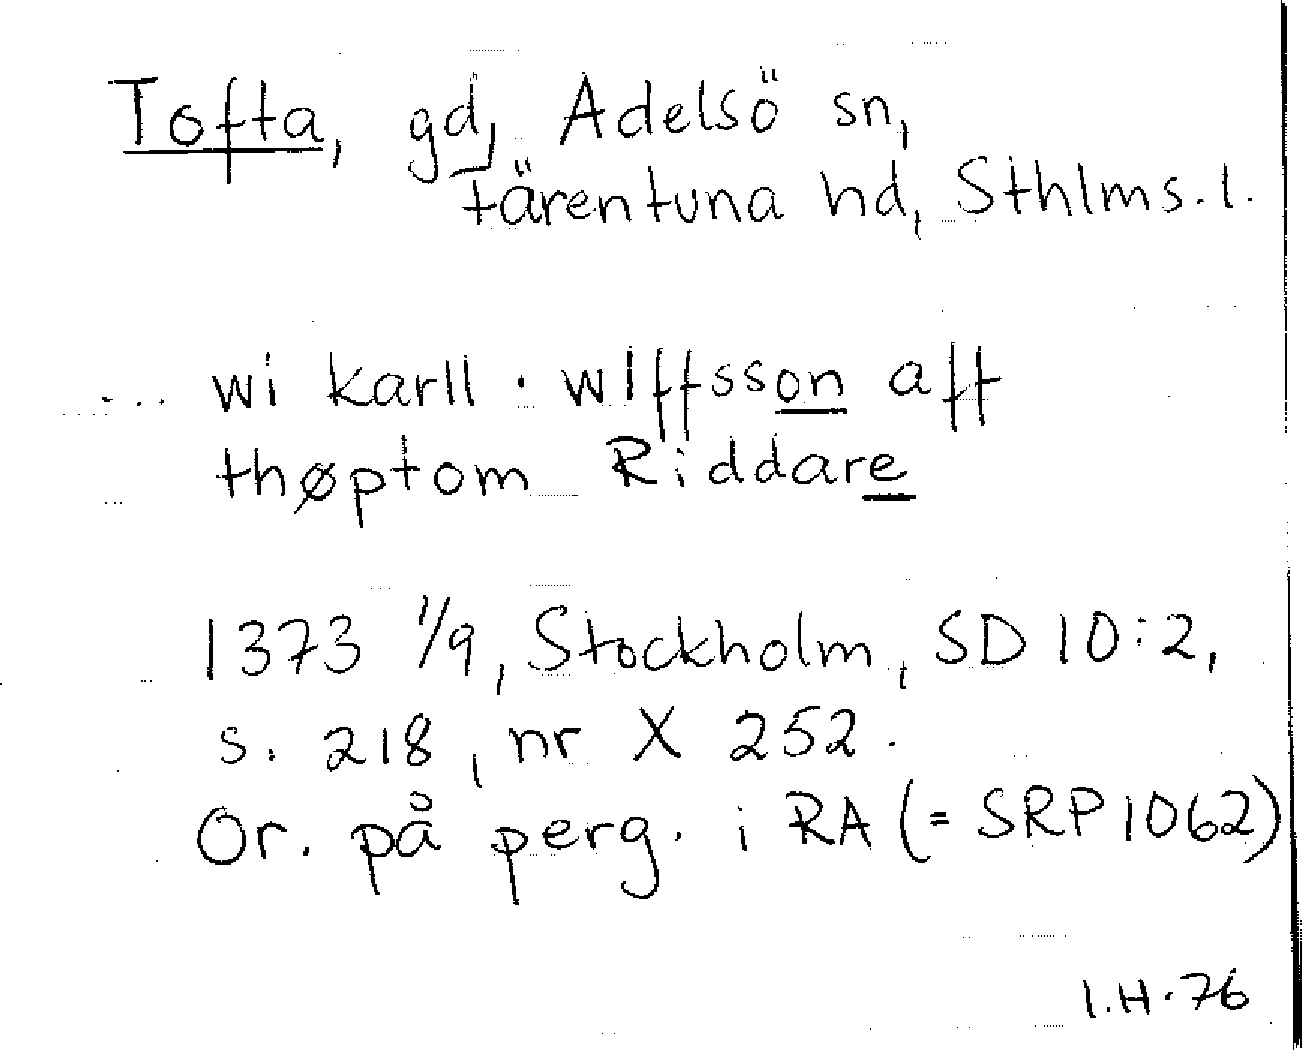 Tofta, gd, Adelsö sn,
Färentuna hd, Sthlms. l.
... wi karll · wlffsson aff
thøptom Riddare
1373 1/9, Stockholm, SD 10:2,
s. 218, nr X 252.
Or. på perg. i RA (= SRP 1062)
I.H. 76